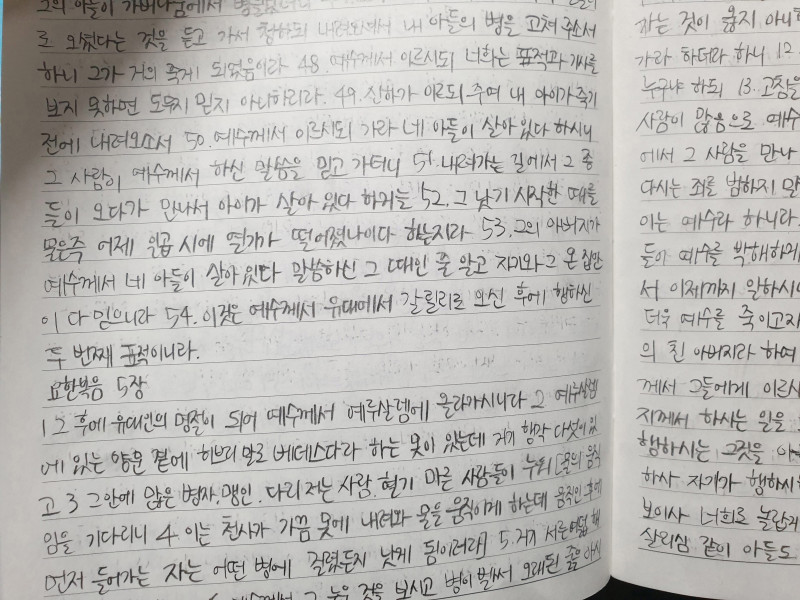 그의 아들이 가버나움에서 병들었더니
로 오셨다는 것을 듣고 가서 청하되 내려오셔서 내 아들의 병을 고쳐 주소서
하니 그가 거의 죽게 되었음이라 48 예수께서 이르시되 너희는 표적과 기사를
보지 못하면 도무지 믿지 아니하리라. 49. 신하가 이르되 주여 내 아이가 죽기
전에 내려오소서 50. 예수께서 이르시되 가라 네 아들이 살아 있다 하시니
그 사람이 예수께서 하신 말씀을 믿고 가더니 51. 내려가는 길에서 그 종
들이 오다가 만나서 아이가 살아 있다 하거늘 52. 그 낫기 시작한 때를
물은즉 어제 일곱 시에 열기가 떨어졌나이다 하는지라 53. 그의 아버지가
예수께서 네 아들이 살아 있다 말씀하신 그 때인 줄 알고 자기와 그 온 집안
이 다 믿으니라 54. 이것은 예수께서 유대에서 갈릴리로 오신 후에 행하신
두 번째 표적이니라.
요한복음 5장
1 그 후에 유대인의 명절이 되어 예수께서 예루살렘에 올라가시니라 2 예루살렘
에 있는 양문 곁에 히브리 말로 베데스다라 하는 못이 있는데 거기 행각 다섯이 있
고 3 그 안에 많은 병자, 맹인, 다리 저는 사람, 혈기 마른 사람들이 누워 [물의 움직
임을 기다리니 4. 이는 천사가 가끔 못에 내려와 물을 움직이게 하는데 움직인 후에
먼저 들어가는 자는 어떤 병에 걸렸든지 낫게 됨이러라] 5. 거기 서른여덟 해
예수께서 그 누운 것을 보시고 병이 벌써 오래된 줄을 아시
자는 것이 옳지 아니
가라 하더라 하니 12
누구냐 하되 13. 고침을
사람이 많음으로 예수
에서 그 사람을 만나
다시는 죄를 범하지 말
이는 예수라 하니라.
들이 예수를 박해하게
서 이제까지 일하시니
더욱 예수를 죽이고자
의 친 아버지라 하여
께서 그들에게 이르시
지께서 하시는 일을
행하시는 그것을 아
하사 자기가 행하시
보이사 너희로 놀랍게
살리심 같이 아들도